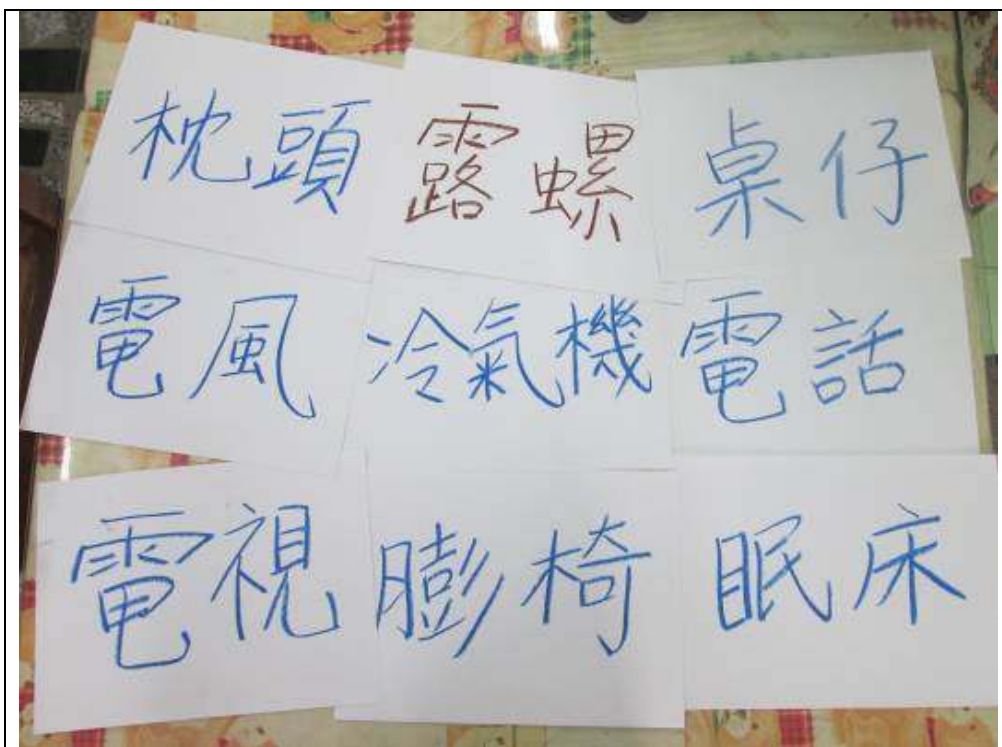 枕頭
露螺
桌仔
電風
冷氣機
電話
電視
膨椅
眠床